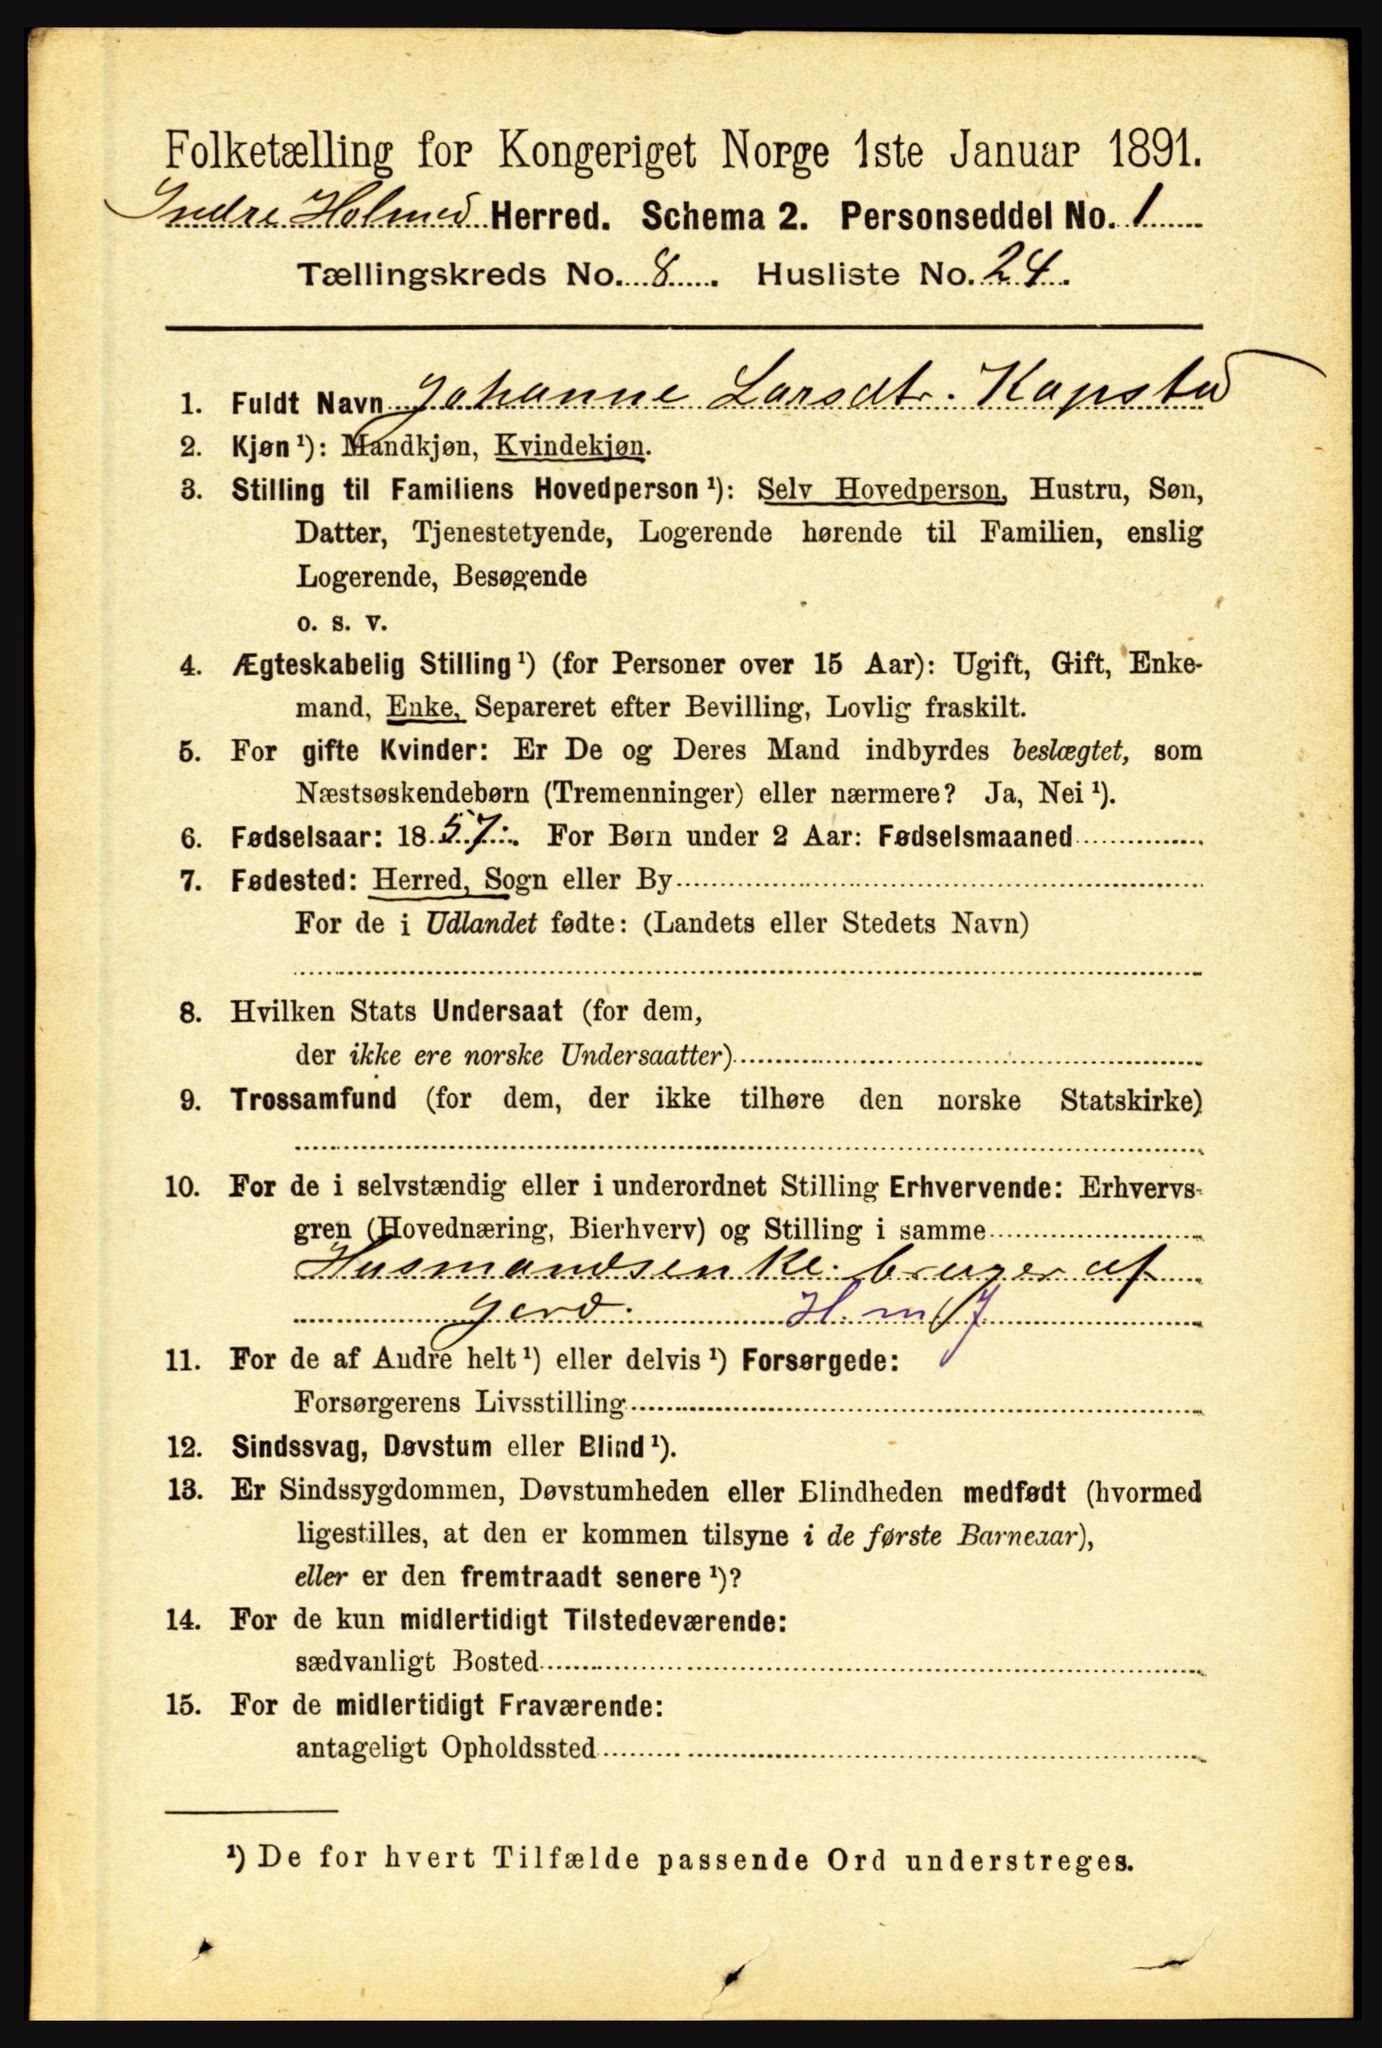 Folketælling for Kongeriget Norge 1ste Januar 1891.
Indre Holmed Herred. Schema 2. Personseddel No. 1
Tællingskreds No. 8. Husliste No. 24.
1. Fuldt Navn Johanne Larsdtr. Kapstad
2. Kjøn¹): Mandkjøn, Kvindekjøn.
3. Stilling til Familiens Hovedperson¹): Selv Hovedperson, Hustru, Søn,
Datter, Tjenestetyende, Logerende hørende til Familien, enslig
Logerende, Besøgende
o. s. v.
4. Ægteskabelig Stilling¹) (for Personer over 15 Aar): Ugift, Gift, Enke-
mand, Enke, Separeret efter Bevilling, Lovlig fraskilt.
5. For gifte Kvinder: Er De og Deres Mand indbyrdes beslægtet, som
Næstsøskendebørn (Tremenninger) eller nærmere? Ja, Nei¹).
6. Fødselsaar: 1857. For Børn under 2 Aar: Fødselsmaaned
7. Fødested: Herred, Sogn eller By
For de i Udlandet fødte: (Landets eller Stedets Navn)
8. Hvilken Stats Undersaat (for dem,
der ikke ere norske Undersaatter)
9. Trossamfund (for dem, der ikke tilhøre den norske Statskirke)
10. For de i selvstændig eller i underordnet Stilling Erhvervende: Erhvervs-
gren (Hovednæring, Bierhverv) og Stilling i samme
Husmandsenke. bruger af
Jord. H. m/J
11. For de af Andre helt¹) eller delvis¹) Forsørgede:
Forsørgerens Livsstilling
12. Sindssvag, Døvstum eller Blind¹).
13. Er Sindssygdommen, Døvstumheden eller Blindheden medfødt (hvormed
ligestilles, at den er kommen tilsyne i de første Barneaar),
eller er den fremtraadt senere¹)?
14. For de kun midlertidigt Tilstedeværende:
sædvanligt Bosted
15. For de midlertidigt Fraværende:
antageligt Opholdssted
¹) De for hvert Tilfælde passende Ord understreges.